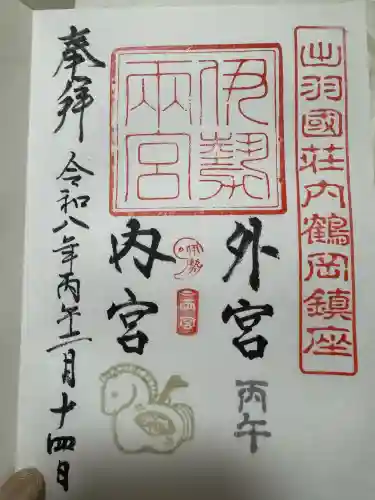 出羽國荘内鶴岡鎮座
伊勢
両宮
外宮
丙午
伊勢
両宮
内宮
奉拝
令和八年丙午二月十四日